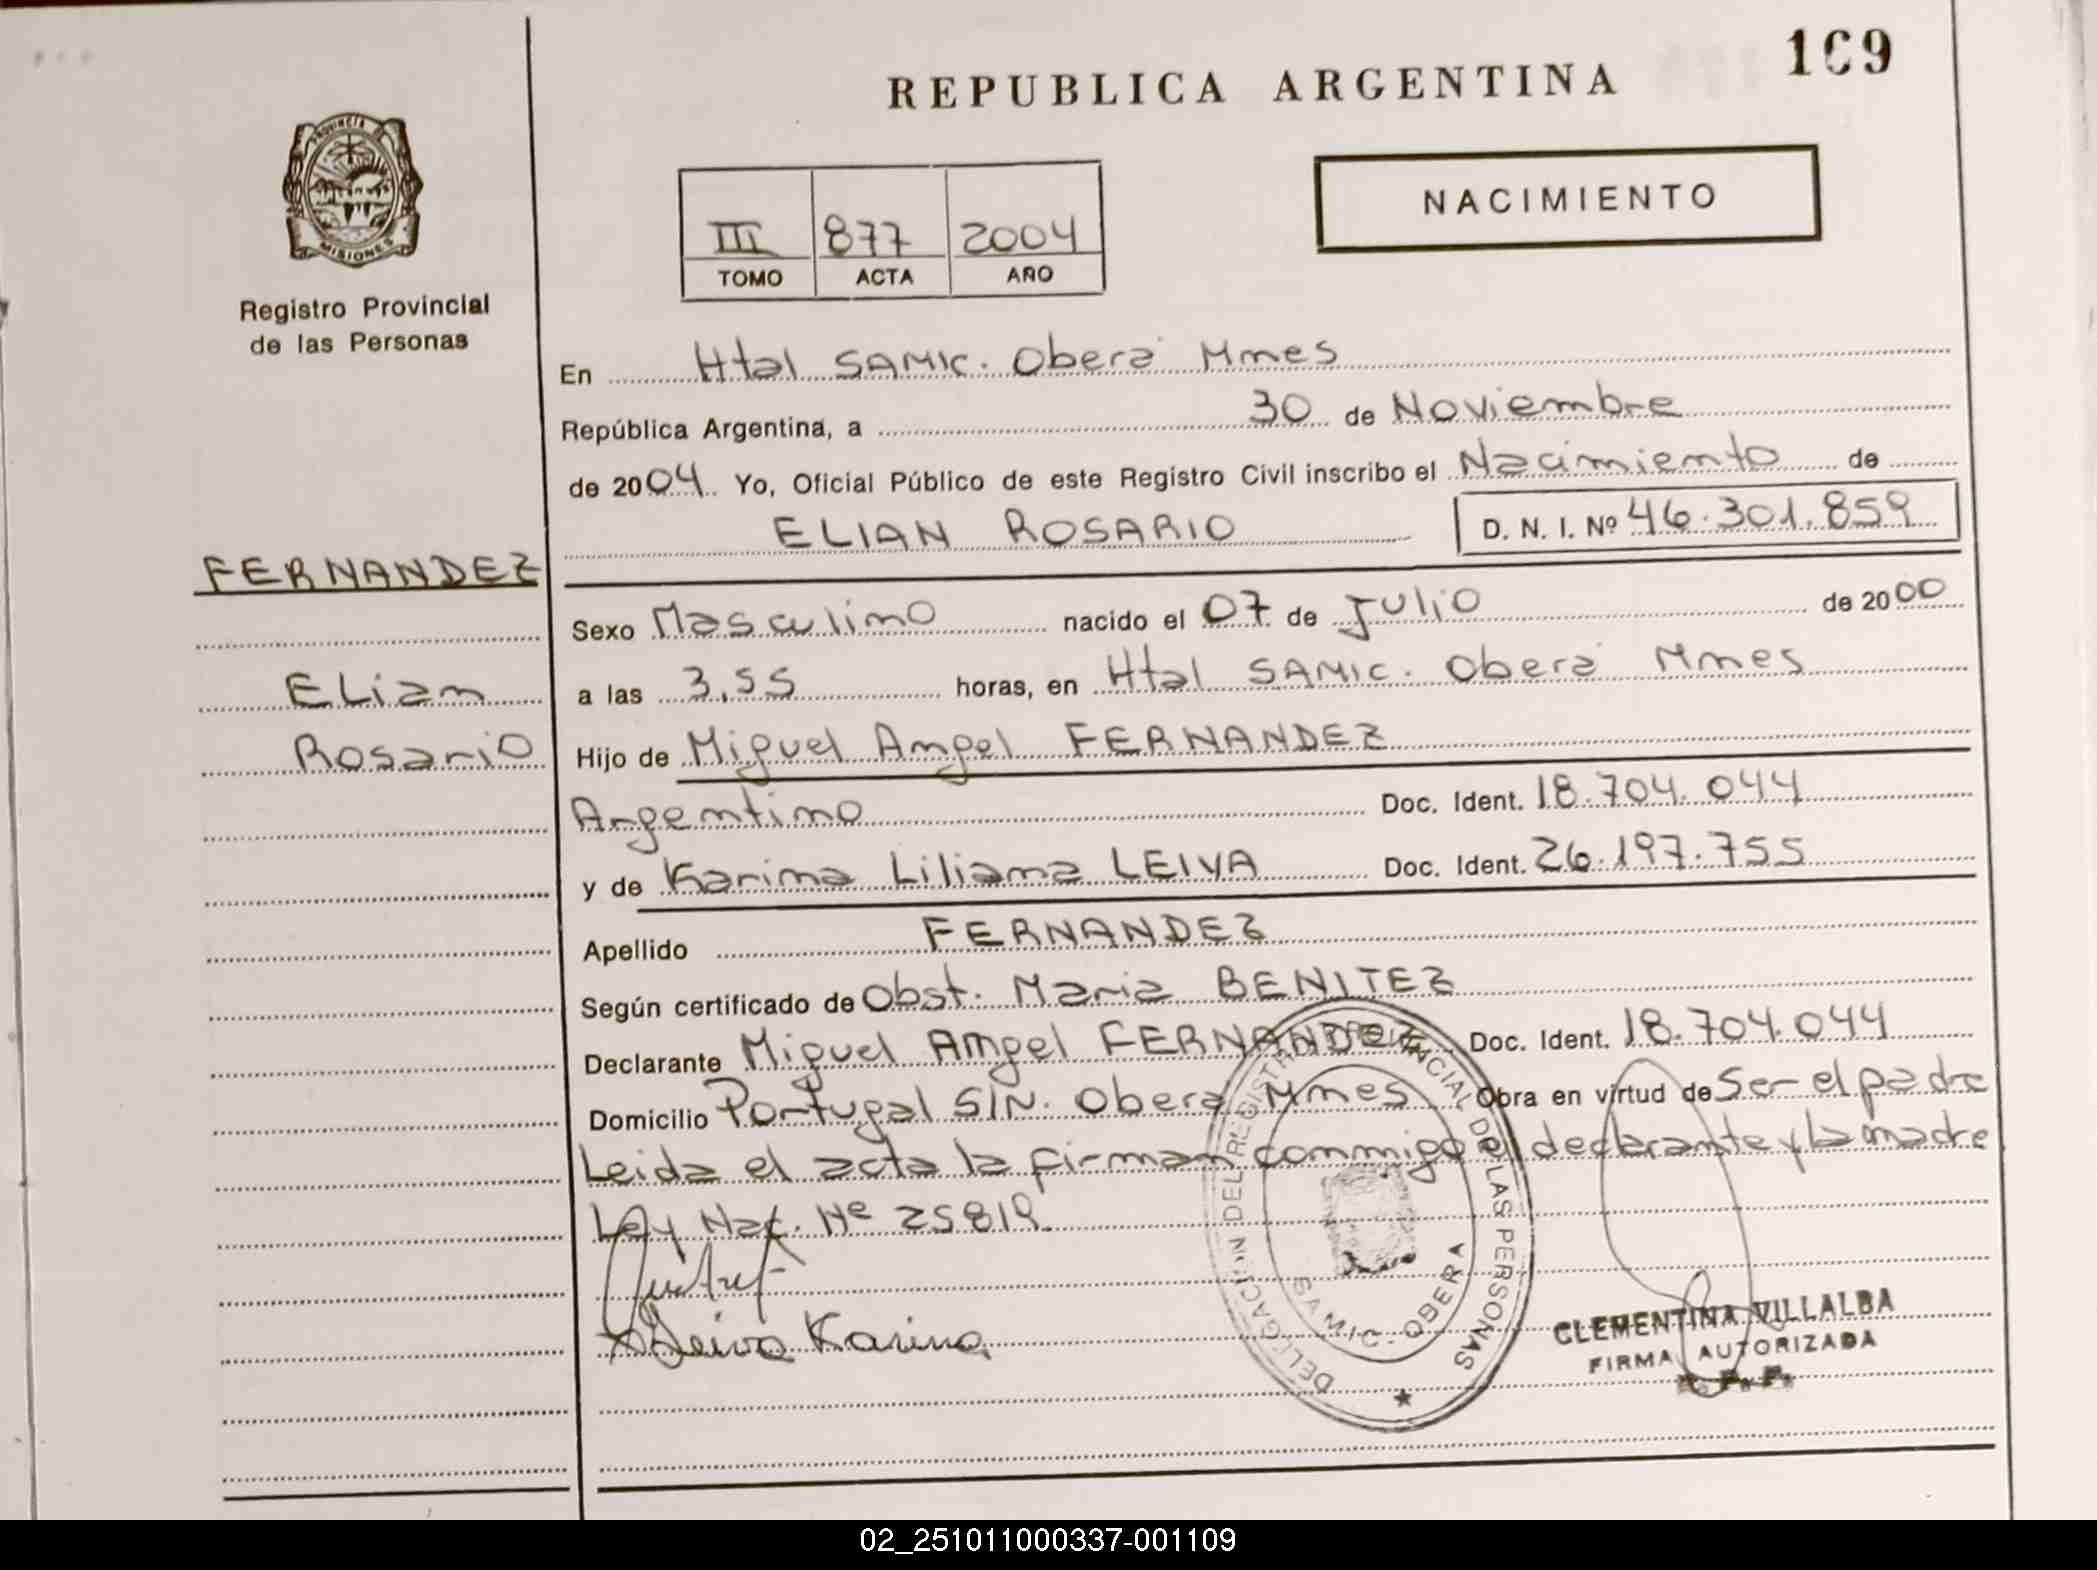 REPUBLICA ARGENTINA
109
PROVINCIA DE
MISIONES
Registro Provincial
de las Personas
NACIMIENTO
III 877 2004
TOMO ACTA AÑO
En Htal SAMIC. Oberá Mnes
República Argentina, a 30 de Noviembre
de 2004. Yo, Oficial Público de este Registro Civil inscribo el Nacimiento de
ELIAN ROSARIO D. N. I. Nº 46.301.859
FERNANDEZ
Elian
Rosario
Sexo Masculino nacido el 07 de Julio de 2000
a las 3.55 horas, en Htal SAMIC. Oberá Mnes
Hijo de Miguel Angel FERNANDEZ
Argentino Doc. Ident. 18.704.044
y de Karina Liliana LEIVA Doc. Ident. 26.197.755
Apellido FERNANDEZ
Según certificado de Obst. Maria BENITEZ
Declarante Miguel Angel FERNANDEZ Doc. Ident. 18.704.044
Domicilio Portugal S/N. Oberá Mnes Obra en virtud de Ser el padre
Leida el acta la firman conmigo el declarante y la madre
Ley Nac. Nº 25819.
Leiva Karina
DELEGACION DEL REGISTRO PROVINCIAL DE LAS PERSONAS
SAMIC - OBERA
CLEMENTINA VILLALBA
FIRMA AUTORIZADA
R. P. P.
02_251011000337-001109